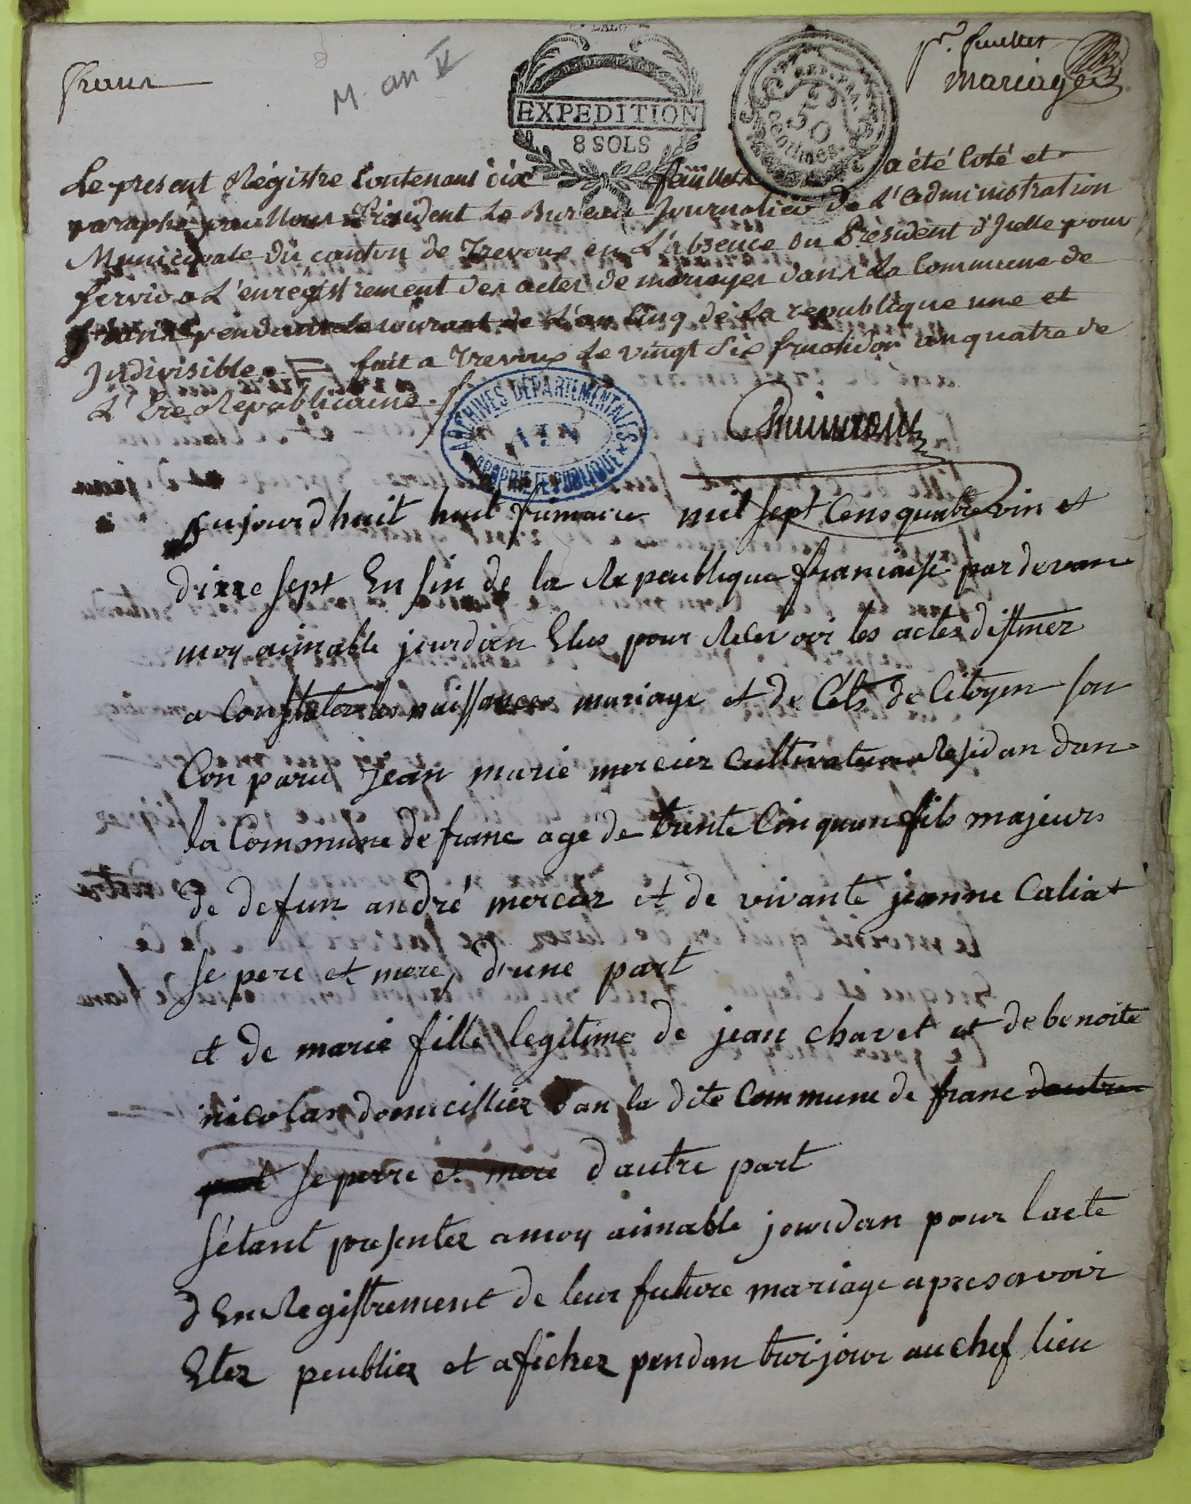 frans
M. an V
EXPEDITION
8 SOLS
REP. FRA.
50
Centimes
pr. feuillet
mariages
Le present Régistre Contenant dix feuillets a été Coté et
paraphé par Nous President Le Bureau Journalier de L'administration
Municipale du canton de Trevoux en L'absence du Président d'Icelle pour
servir a L'enregistrement des actes de mariages dans La Commune de
frans pendant le courant de L'an Cinq de La republique une et
Indivisible. = fait a Trevoux Le vingt six fructidor an quatre de
L'Ere Republicaine
ARCHIVES DEPARTEMENTALES
AIN
PROPRIETE PUBLIQUE
aujourdhuit huit frimaire mil sept Cens quatre vin et
dixe sept En sin de la Republique francaise par devan
moy aimable jourdan Elus pour Recevoir les actes destinez
a Constater les naissances mariage et de Cès de Citoyen son
Con paru Jean marie mercier Cultivateur Residan dan
la Commune de franc age de trente Cin quan fils majeur
de defun andré mercier et de vivante jeanne Caliat
se pere et mere, d'une part
et de marie fille legitime de jean chavet et de benoite
nicolas domicillier dan la dite Commune de franc dautre
part se perre et mere d'autre part
s'étant presenter a moy aimable jourdan pour lacte
d'En Registrement de leur future mariage apres avoir
Eter peublier et aficher pendan troi jour au chef lieu